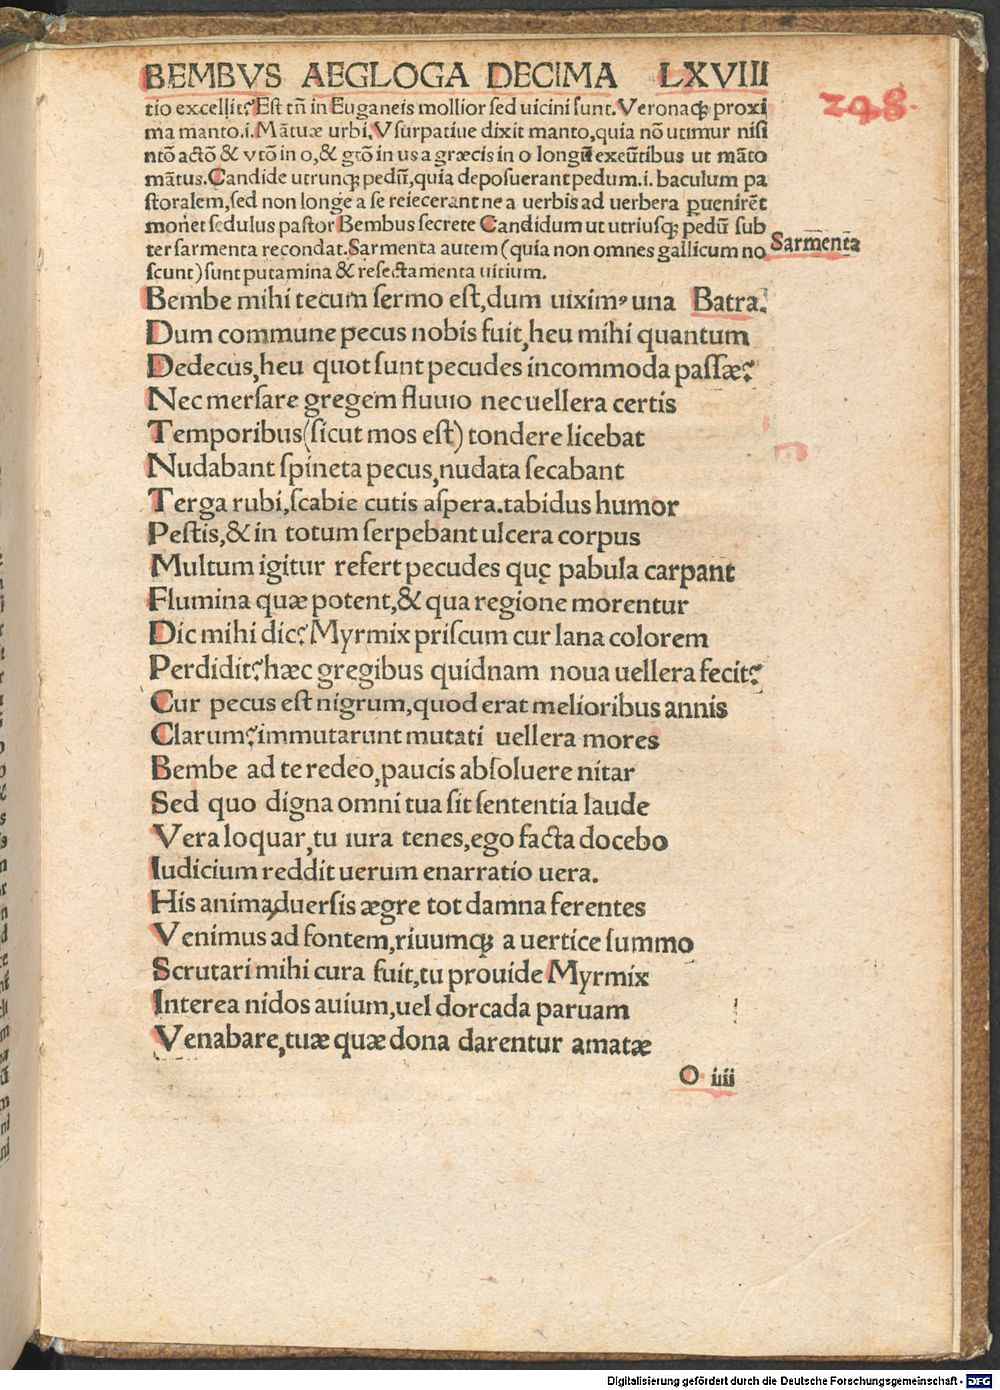 BEMBVS AEGLOGA DECIMA LXVIII
248.
tio excellit? Est tñ in Euganeis mollior sed uicini sunt. Veronaq; proxi
ma manto.i. Mātuæ urbi. Vsurpatiue dixit manto, quia nō utimur nisi
ntō actō & vtō in o, & gtō in us a græcis in o longū exeūtibus ut māto
mātus. Candide utrunq; pedū, quia deposuerant pedum.i. baculum pa
storalem, sed non longe a se reiecerant ne a uerbis ad uerbera ꝑuenirēt
monet sedulus pastor Bembus secrete Candidum ut utriusq; pedū sub
ter sarmenta recondat. Sarmenta autem (quia non omnes gallicum no
scunt) sunt putamina & resectamenta uitium.
Sarmenta
Bembe mihi tecum sermo est, dum uiximꝰ una Batra.
Dum commune pecus nobis fuit, heu mihi quantum
Dedecus, heu quot sunt pecudes incommoda passæ?
Nec mersare gregem fluuio nec uellera certis
Temporibus (sicut mos est) tondere licebat
Nudabant spineta pecus, nudata secabant
Terga rubi, scabie cutis aspera. tabidus humor
Pestis, & in totum serpebant ulcera corpus
Multum igitur refert pecudes quę pabula carpant
Flumina quæ potent, & qua regione morentur
Dic mihi dic? Myrmix priscum cur lana colorem
Perdidit? hæc gregibus quidnam noua uellera fecit?
Cur pecus est nigrum, quod erat melioribus annis
Clarum? immutarunt mutati uellera mores
Bembe ad te redeo, paucis absoluere nitar
Sed quo digna omni tua sit sententia laude
Vera loquar, tu iura tenes, ego facta docebo
Iudicium reddit uerum enarratio uera.
His animaduersis ægre tot damna ferentes
Venimus ad fontem, riuumq; a uertice summo
Scrutari mihi cura fuit, tu prouide Myrmix
Interea nidos auium, uel dorcada paruam
Venabare, tuæ quæ dona darentur amatæ
O iiii
Digitalisierung gefördert durch die Deutsche Forschungsgemeinschaft - DFG